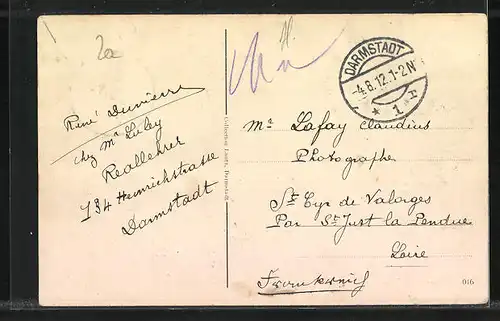 2a
René
chez Mr Luley
Reallehrer
134 Heinrichstrasse
Darmstadt
DARMSTADT
-4.8.12.1-2N
* 1 H
Mr Lafay Claudius
Photographe
St Cyr de Valorges
Par St Just la Pendue
Loire
Frankreich
016